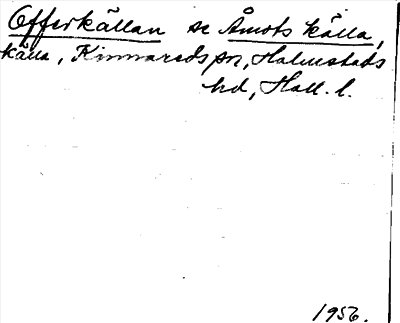 Offerkällan se Åmots källa,
källa, Kinnareds sn, Halmstads
hd, Hall. l.
1956.